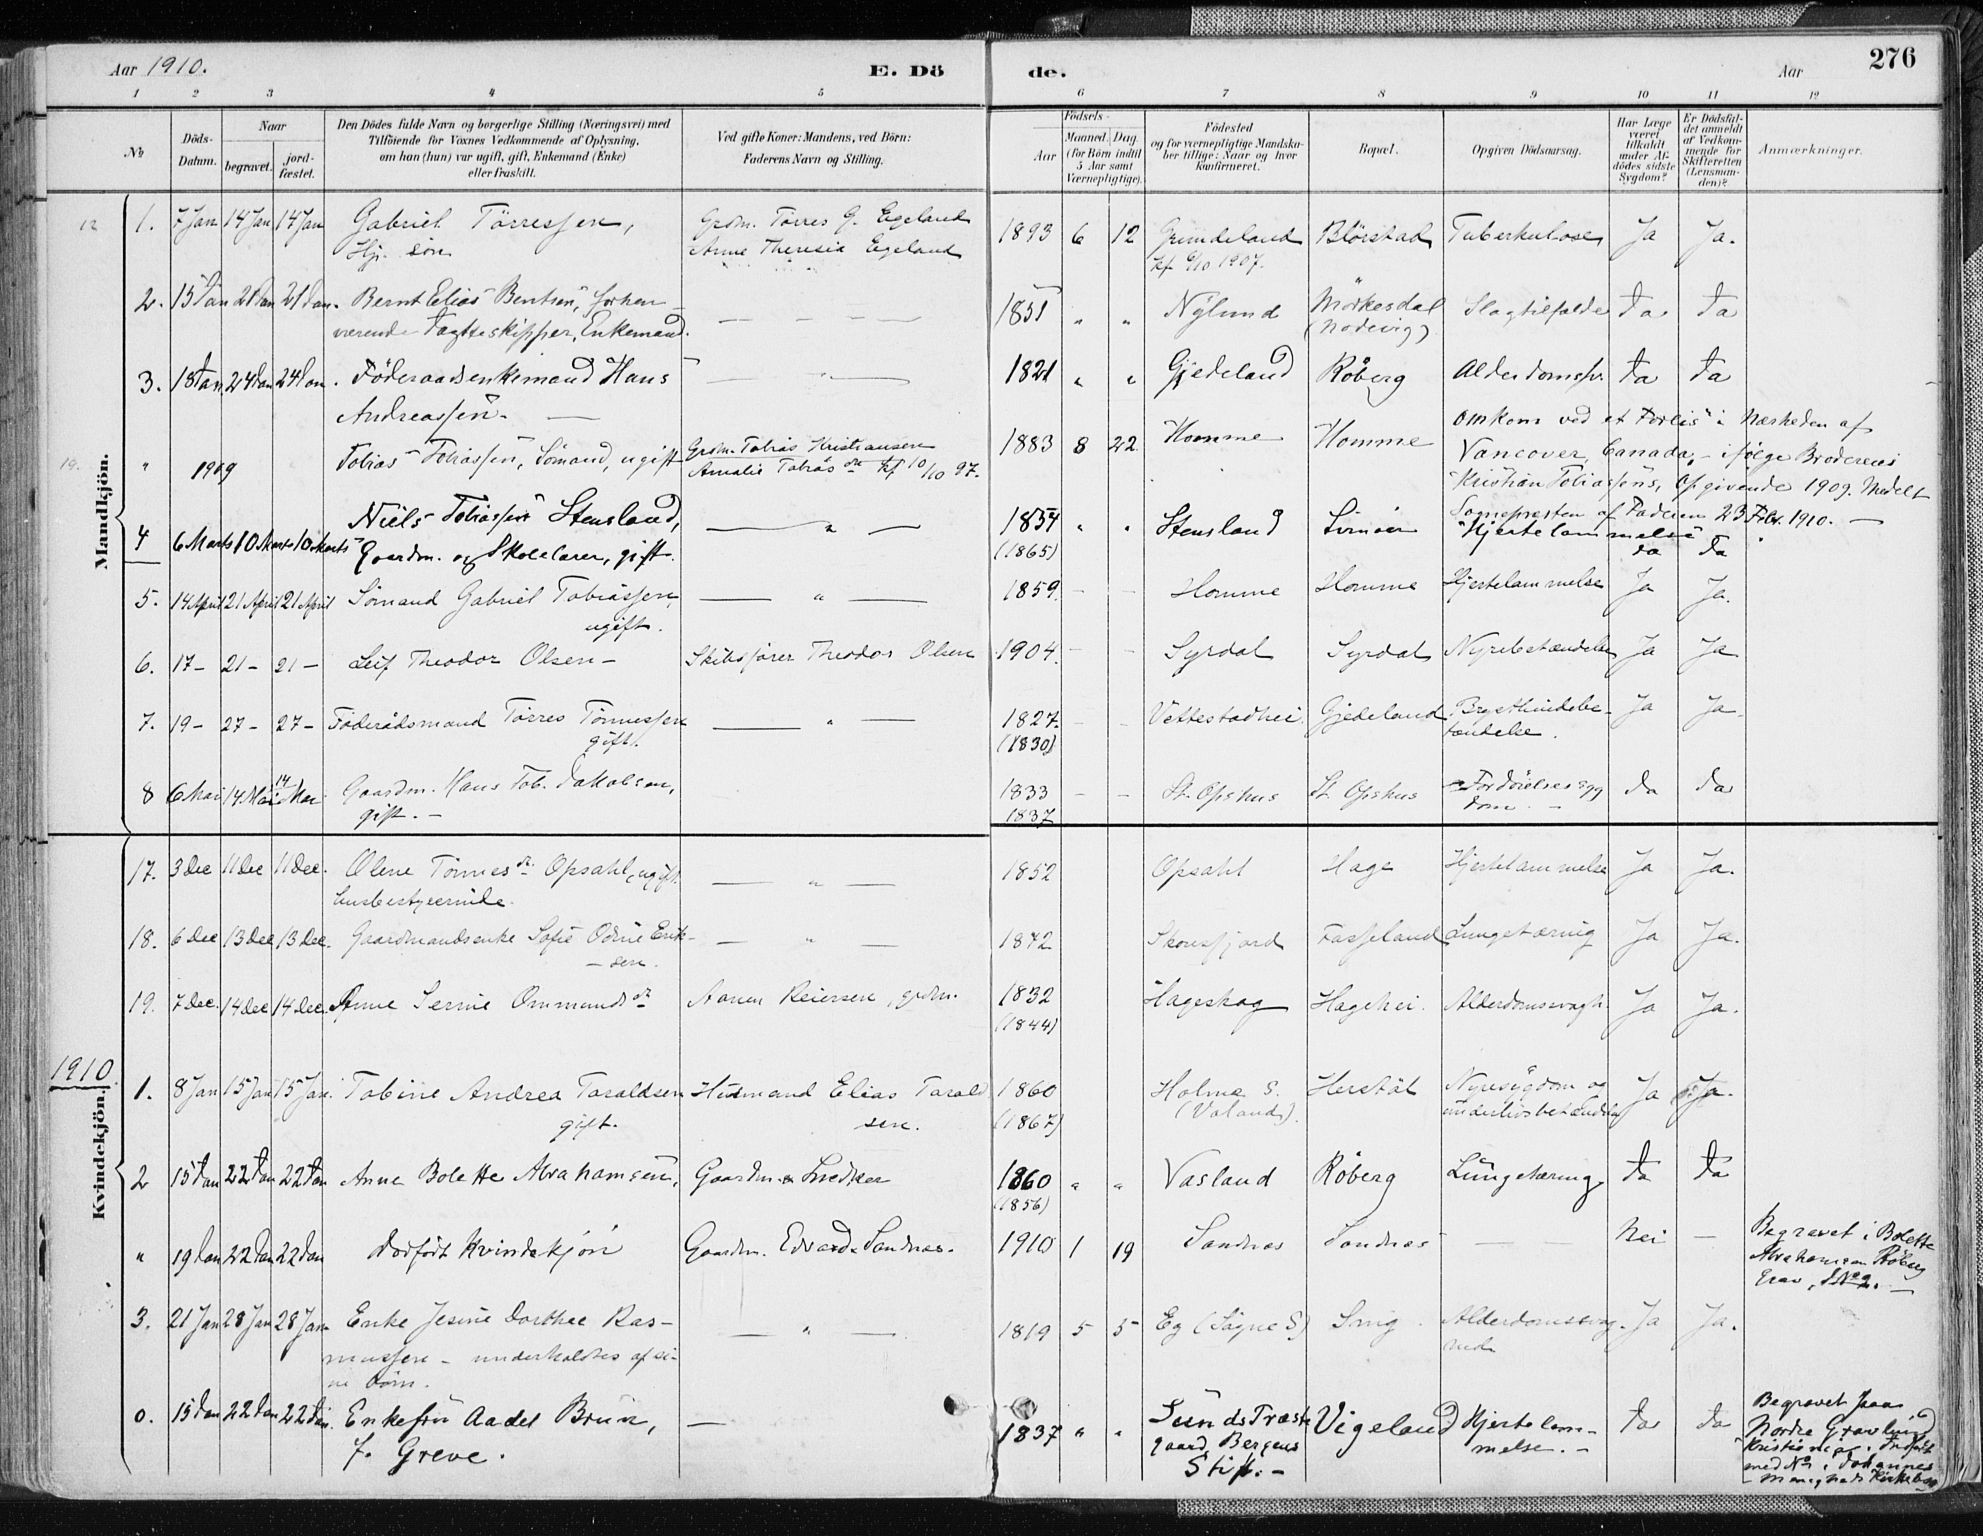 Aar 1910.
E. Dö
de.
Aar
276
1 2 3 4 5 6 7 8 9 10 11 12
No
Döds-Datum.
Naar
begravet.
jord-fæstet.
Den Dödes fulde Navn og borgerlige Stilling (Næringsvei) med
Tilföiende for Voxnes Vedkommende af Oplysning,
om han (hun) var ugift, gift, Enkemand (Enke)
eller fraskilt.
Ved gifte Koner: Mandens, ved Börn:
Faderens Navn og Stilling.
Födsels-
Aar
Maaned. Dag.
(for Börn indtil
5 Aar samt
Værnepligtige).
Födested
og for værnepligtige Mandska-
ber tillige: Naar og hvor
konfirmeret.
Bopæl.
Opgiven Dödsaarsag.
Har Læge
været
tilkaldt
under Af-
dödes sidste
Sygdom?
Er Dödsfal-
det anmeldt
af Vedkom-
mende for
Skifteretten
(Lensman-
den)?
Anmærkninger.
Mandkjön.
12 1. 7 Jan 14 Jan 14 Jan Gabriel Tørressen, Grdm. Tørres G. Egeland 1893 6 12 Grundeland Blörstad Tuberkulose Ja Ja.
Hj. søn Anne Theresia Egeland kf 6/10 1907.
2. 15 Jan 21 Jan 21 Jan. Bernt Elias Bentsen, forhen 1851 " " Nÿlund Mörkesdal Slagtilfælde Ja Ja
værende Jagtteskipper, Enkemand. (Nodevig)
3. 18 Jan. 24 Jan 24 Jan. Föderaadsenkemand Hans 1821 " " Gjedeland Röberg Alderdomssv. Ja Ja
Andreassen.
19. " 1909 Tobias Tobiassen, Sömand, ugift Grdm. Tobias Kristiansen 1883 8 22 Homme Homme Omkom ved et Forlis i Nærheden af
Amalie Tobiasdr. Kf 10/10 97. Vancover, Canada, - ifölge Broderens
Kristian Tobiassens, Opgivende 1909. Medelt
Sognepresten af Faderen 23 Febr. 1910. —
4 6 Marts 10 Marts 10 Marts Niels Tobiassen Stensland, 1854 " " Stensland Hjertelammelse Ja Ja
Gaardm. og Skolelærer, gift. (1865)
5. 14 April 21 April 21 April Sømand Gabriel Tobiassen, 1859. Homme Homme Hjertelammelse Ja Ja.
ugift.
6. 17 - 21 - 21 - Leif Theodor Olsen - Skibsfører Theodor Olsen 1904. Syrdal Syrdal Nyrebetændelse Ja Ja
7. 19 - 27 - 27 - Föderådsmand Tørres Tønnessen 1827. Vettestadhei Gjedeland Brysthindebe- Ja Ja
gift. (1830) tændelse.
8 6 Mai 14 Mai 14 Mai Gaardm. Hans Tob. Jakobsen, 1833 St. Opshus St. Opshus Fordöielsessyg Ja Ja
gift. - 1837 dom. -
Kvindekjön.
17. 3 Dec 11 Dec 11 Dec. Olene Tønnesdr. Opsahl, ugift 1852 Opsahl Hage Hjertelammelse Ja Ja.
husbestyrerinde.
18. 6 Dec 13 Dec 13 Dec. Gaardmandsenke Sofie Odine Erik- 1872 Skonsfjord Fasseland Lungetæring Ja Ja.
- sen.
19. 7 Dec. 14 Dec 14 Dec. Anne Serine Ommundsdr Aanen Reiersen, grdm. 1832 Hageskog Hagehei. Alderdomssvagh. Ja Ja.
(1844)
1910
1. 8 Jan 15 Jan 15 Jan. Tobine Andrea Taraldsen Husmand Elias Tarald 1860 Holme S. Herstöl Nyresygdom og Ja Ja.
gift. sen. (1867) (Valand). underlivsbetændelse
2 15 Jan 22 Jan 22 Jan Anne Bolette Abrahamsen, Gaardm. & Snedker 1860 " " Vasland Röberg Lungetæring Ja Ja
(1856)
" 19 Jan 22 Jan 22 Jan Dödfödt Kvindekjön Gaardm. Edvard Sandnes. 1910 1 19 Sandnes Sandnes Nei — Begravet i Bolette
Abrahamsen Röberg
Grav, S No 2. -
3. 21 Jan 28 Jan 28 Jan Enke Jesine Dorthee Ras- 1819 5 5 Eg (Søgne S) Alderdomssvag- Ja Ja.
mussen - underholdtes af si- hed
ne børn.
0. 15 Jan 22 Jan 22 Jan. Enkefru Aadel Brun, — 1837 " " Sunds Præste Vigeland Hjertelam- Ja Ja Begravet paa
f. Greve. gaard, Bergens melse. - Nordre Gravlund
Stift. - Kristiania. Indført
med No i Johannes
Menigheds Kirkebog